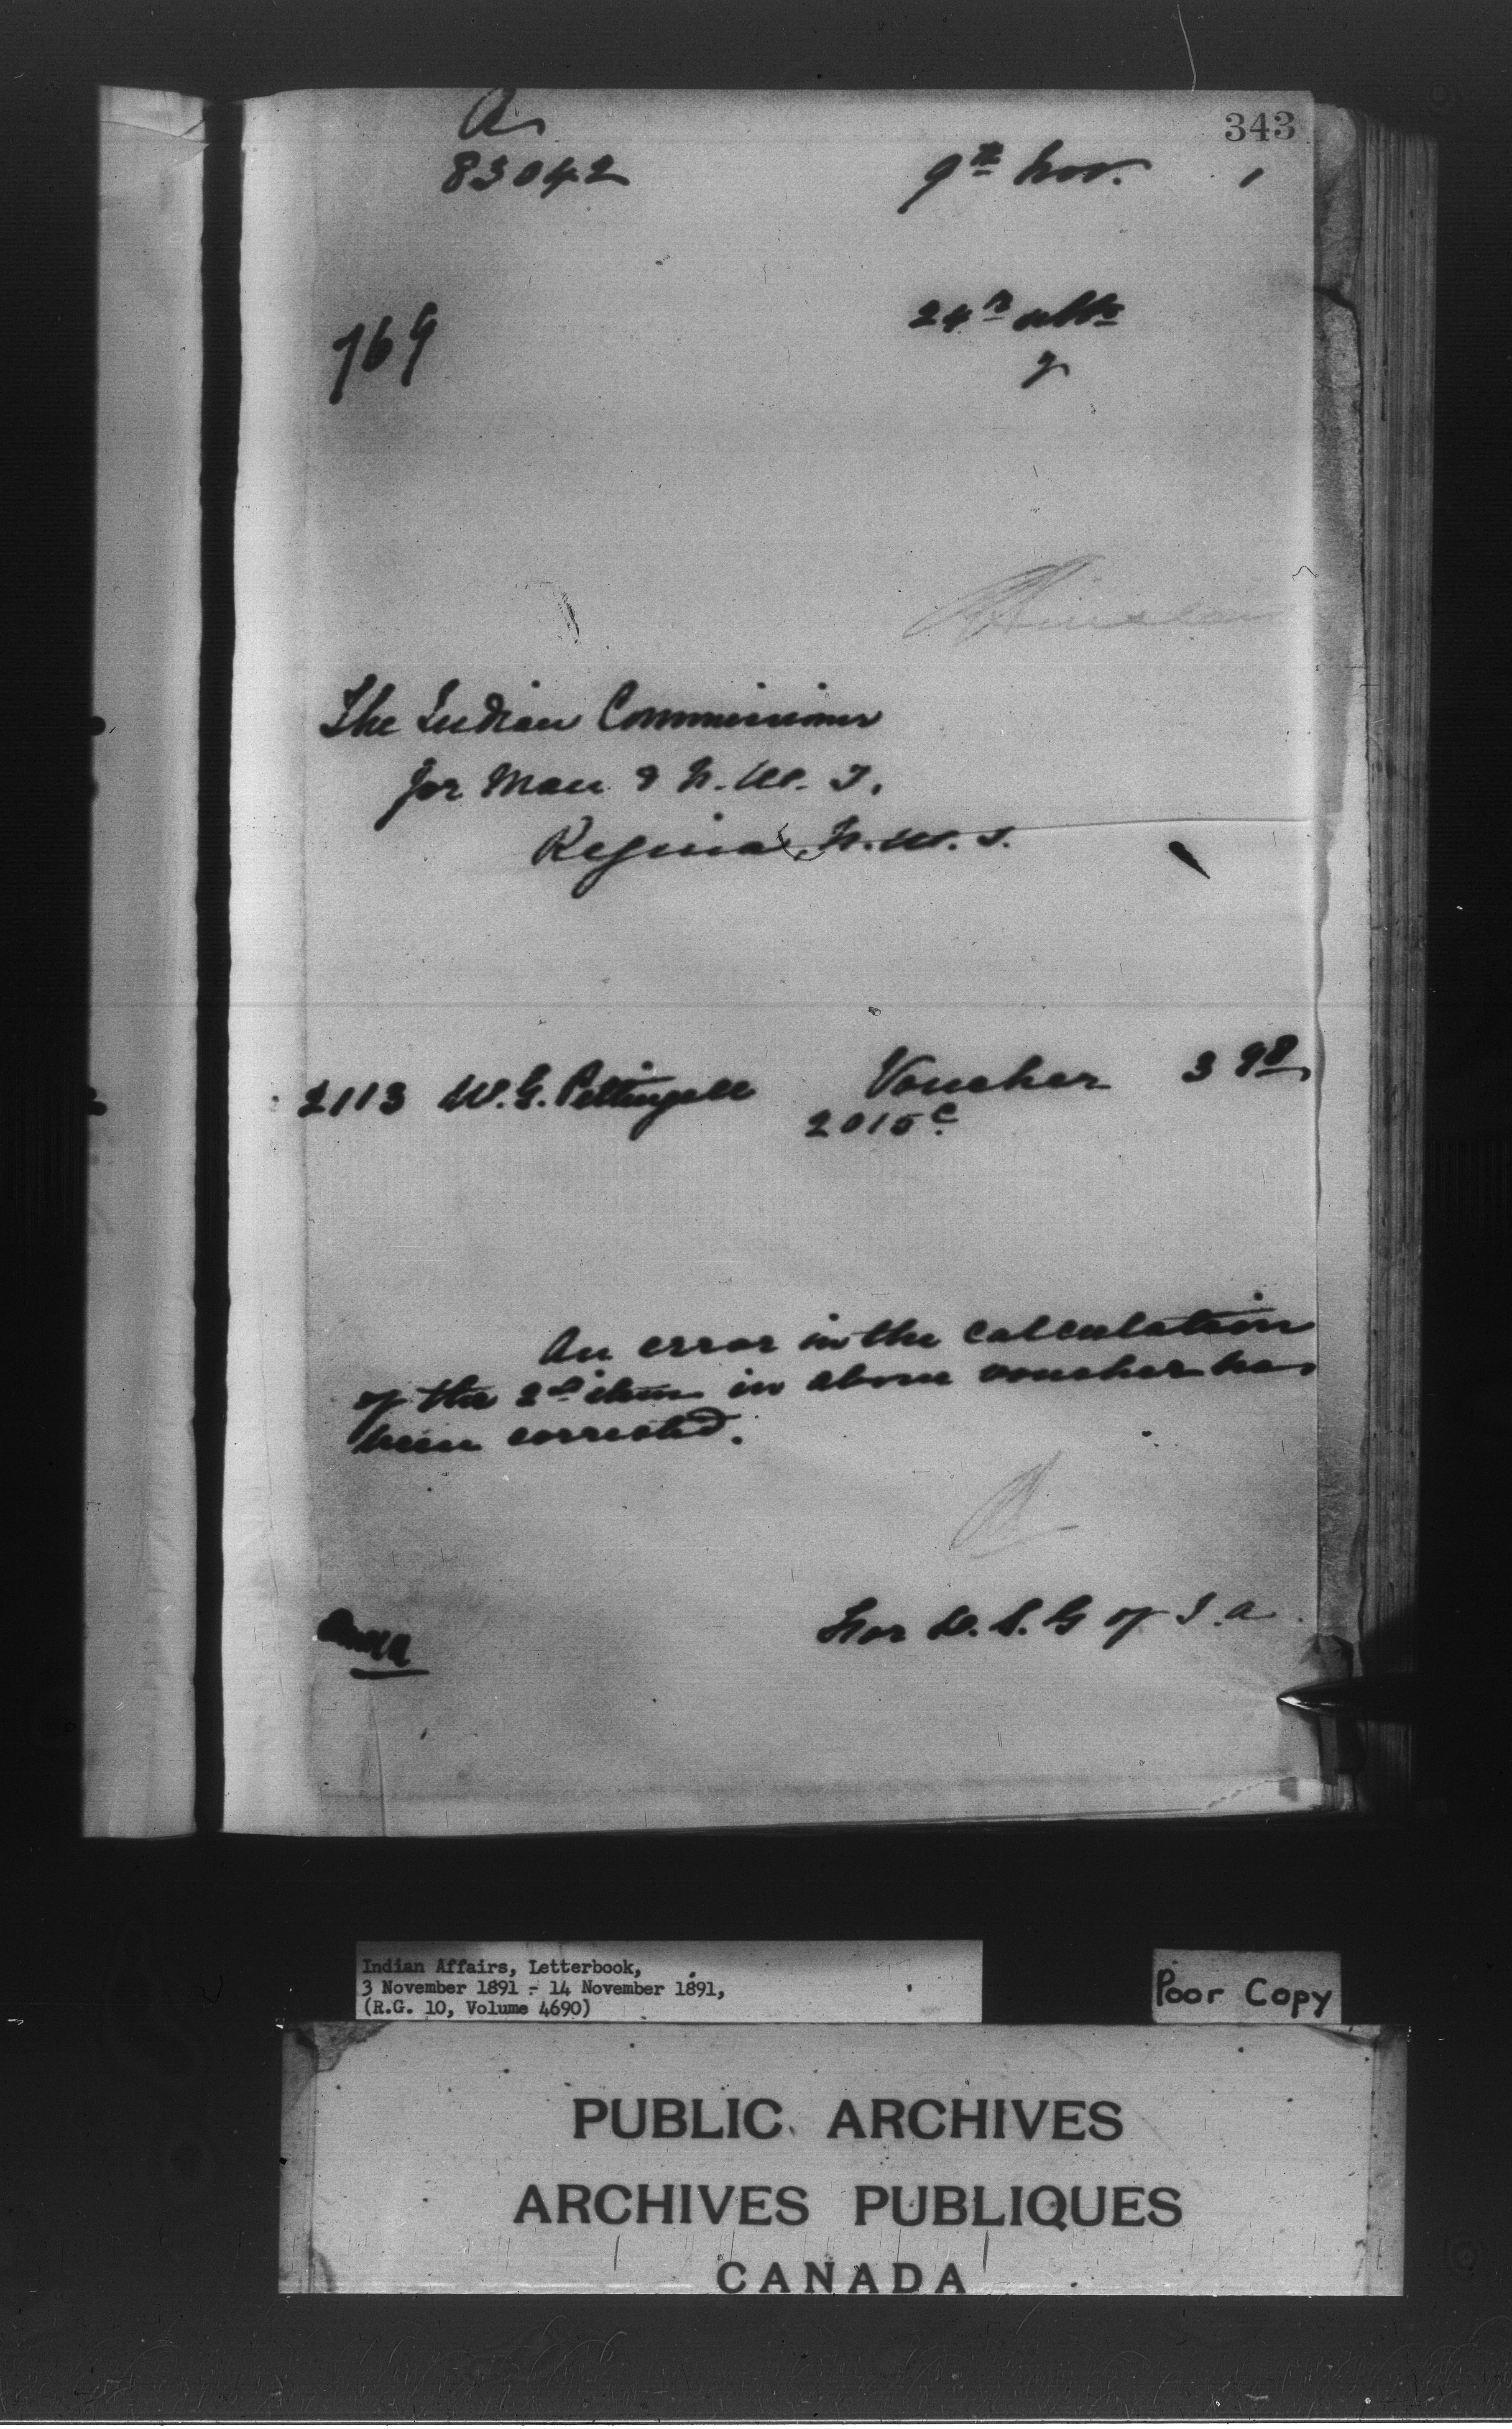 343
A
83042 9th Nov. 1
769 24th ulto
The Indian Commissioner
for Man & N.W.T.
Regina, N.W.T.
2113 W.G. Pettingell Voucher 3 98
2015c
An error in the calculation
of the 2d item in above voucher has
been corrected.
For D.S.G of I.A.
Indian Affairs, Letterbook,
3 November 1891 - 14 November 1891,
(R.G. 10, Volume 4690)
Poor Copy
PUBLIC ARCHIVES
ARCHIVES PUBLIQUES
CANADA